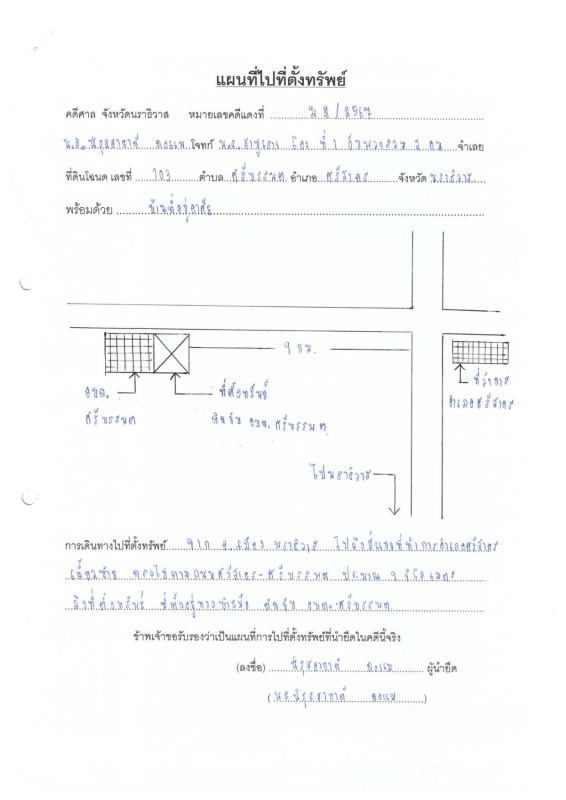 แผนที่ไปที่ตั้งทรัพย์
คดีศาล จังหวัดนราธิวาส หมายเลขคดีแดงที่ ผ 2 / 2567
น.ส. นิรุสลาตาร์ โจทก์ น.ส. ที่ 1 กับพวกรวม 2 คน จำเลย
ที่ดินโฉนด เลขที่ 703 ตำบล ศรีบรรพต อำเภอ ศรีสาคร จังหวัด นราธิวาส
พร้อมด้วย บ้านที่อยู่อาศัย
9 กม.
อบต. ศรีบรรพต
ที่ตั้งทรัพย์ ติดกับ อบต. ศรีบรรพต
ที่ว่าการ อำเภอศรีสาคร
ไปนราธิวาส
การเดินทางไปที่ตั้งทรัพย์ จาก อ.เมือง นราธิวาส ไปถึงสี่แยกที่ทำการอำเภอศรีสาคร
เลี้ยวซ้าย ตรงไปตามถนนศรีสาคร-ศรีบรรพต ประมาณ 9 กิโลเมตร
ถึงที่ตั้งทรัพย์ ที่ตั้งอยู่ทางซ้ายมือ ติดกับ อบต. ศรีบรรพต
ข้าพเจ้าขอรับรองว่าเป็นแผนที่การไปที่ตั้งทรัพย์ที่นำยึดในคดีนี้จริง
(ลงชื่อ) นิรุสลาตาร์ ผู้นำยึด
( น.ส. นิรุสลาตาร์ )